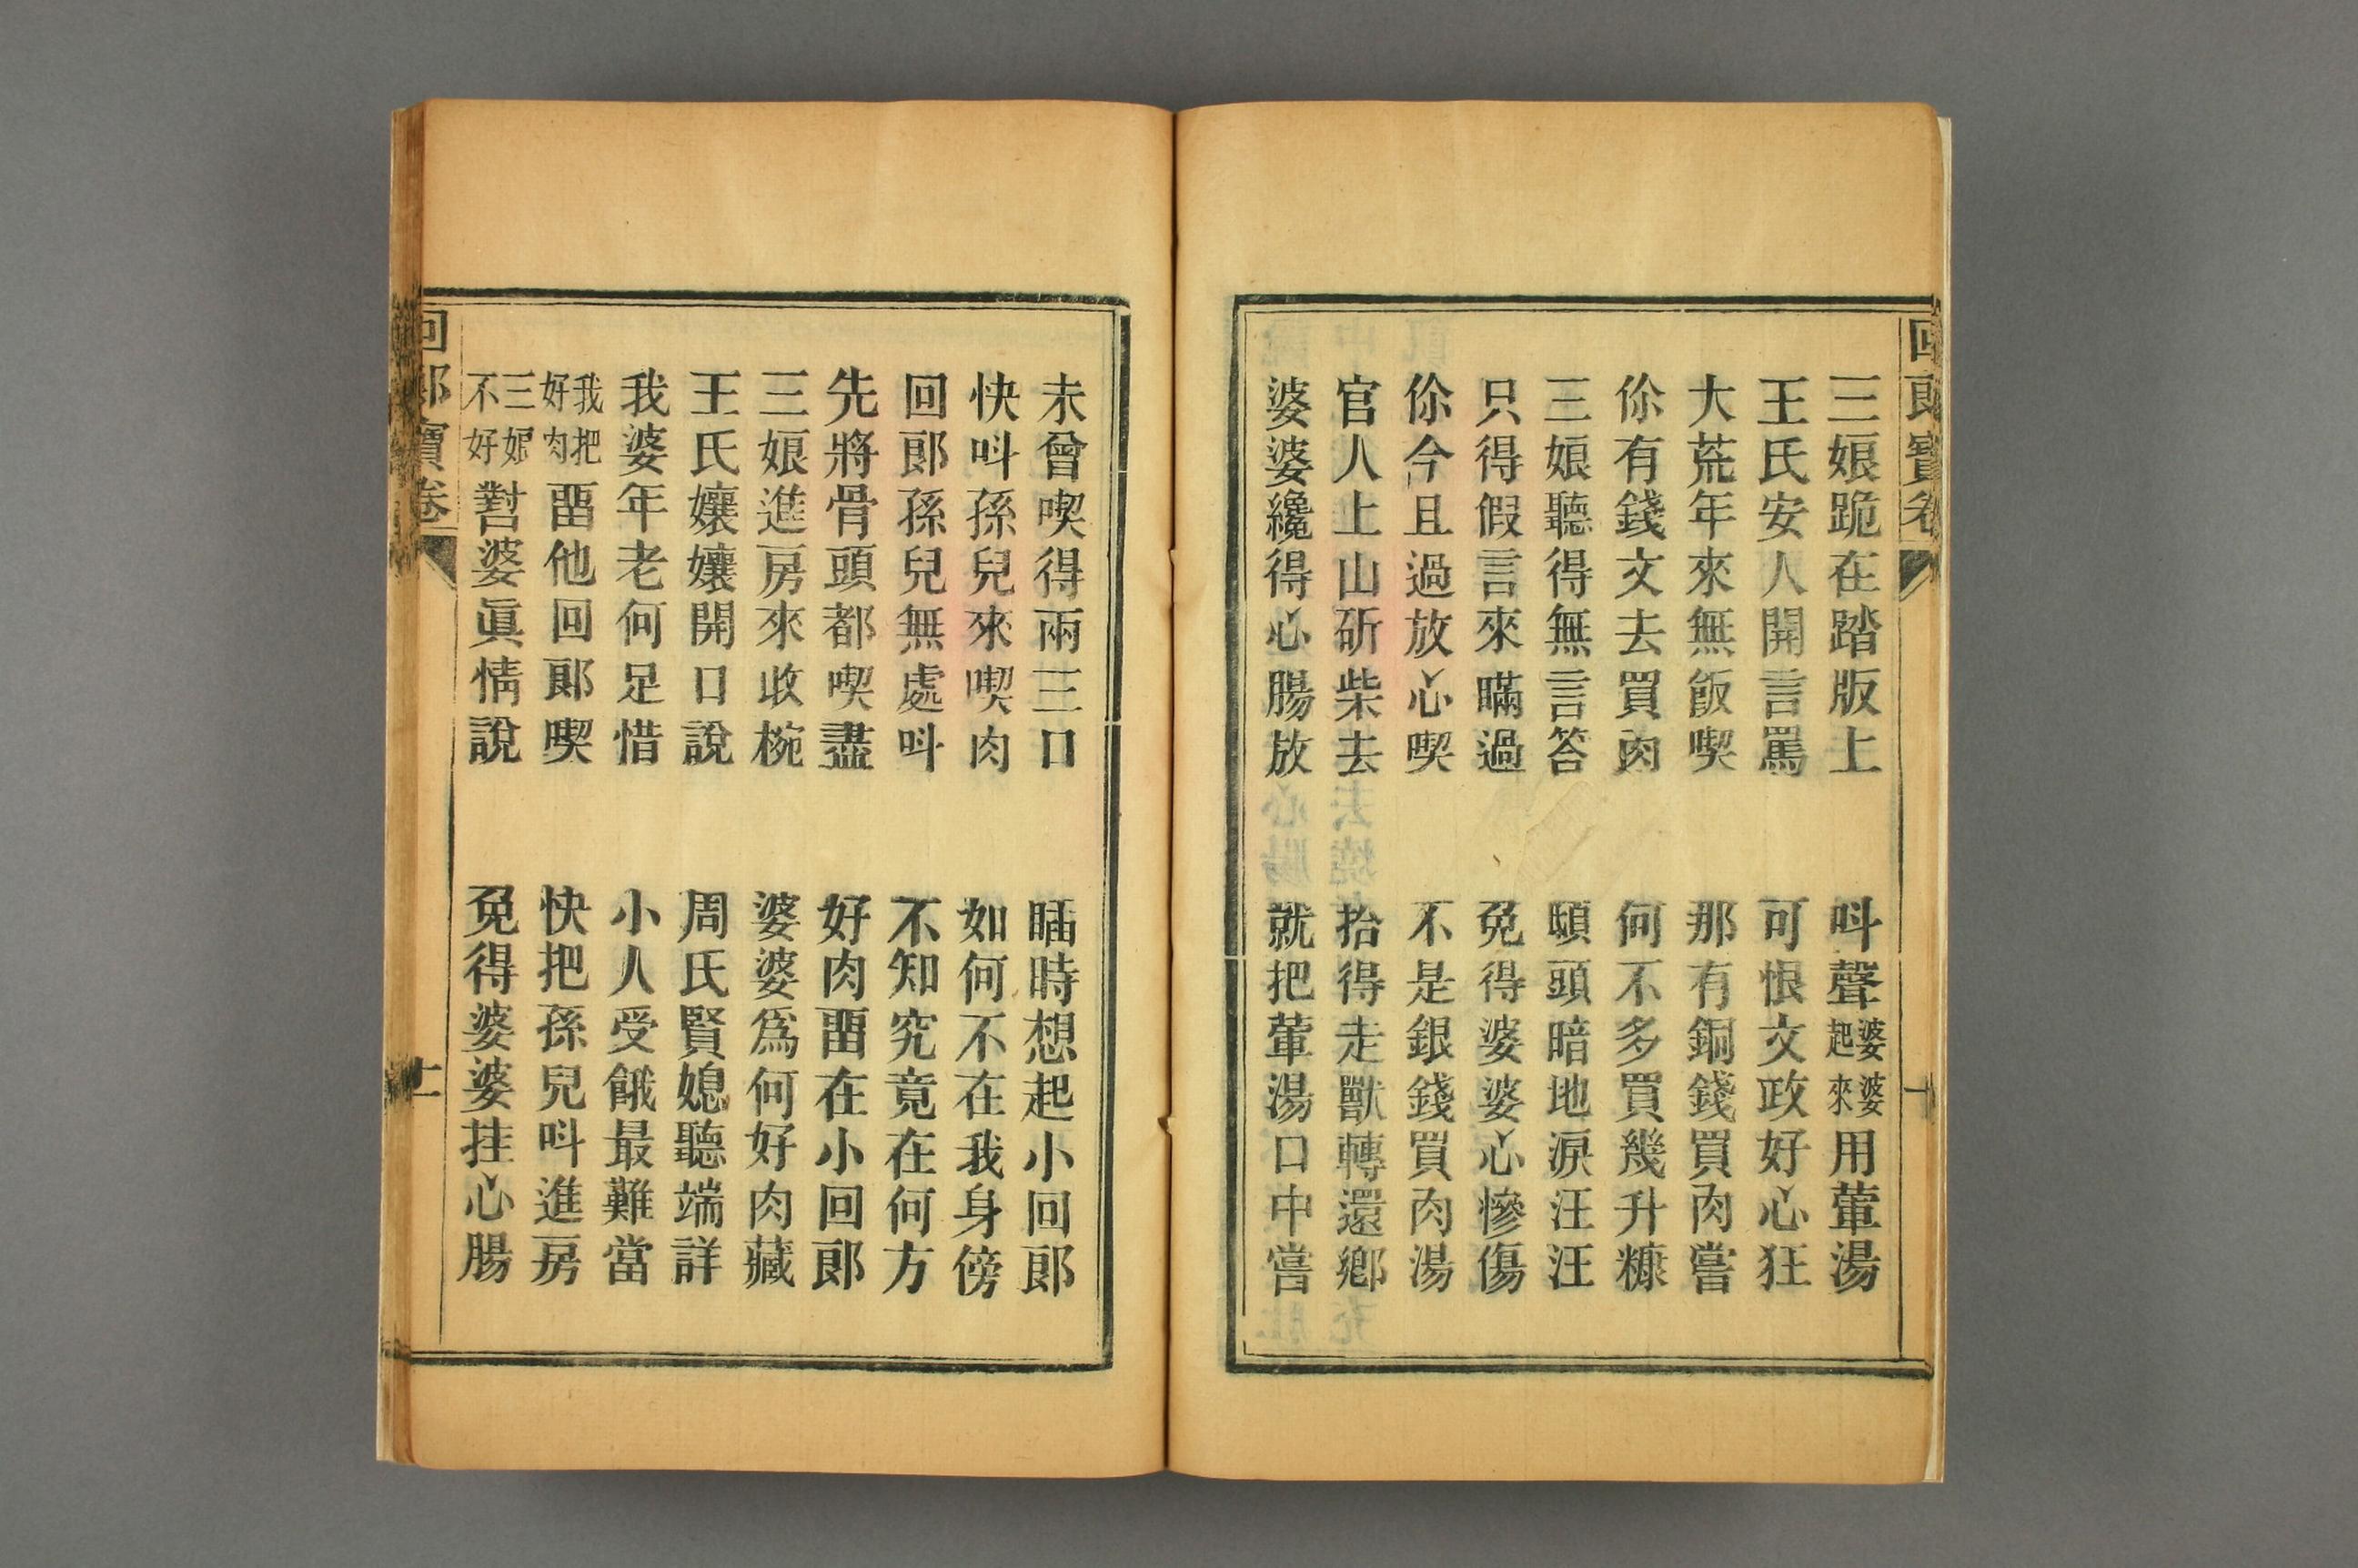 回郎寶卷
十
三娘跪在踏版上　呌聲婆婆起來用葷湯
王氏安人開言罵　可恨文政好心狂
大荒年來無飯喫　那有銅錢買肉嘗
伱有錢文去買肉　何不多買幾升糠
三娘聽得無言答　頤頭暗地淚汪汪
只得假言來瞞過　免得婆婆心慘傷
伱今且過放心喫　不是銀錢買肉湯
官人上山斫柴去　拾得走獸轉還鄉
婆婆纔得心腸放　就把葷湯口中嘗
未曾喫得兩三口　瞄時想起小回郎
快呌孫兒來喫肉　如何不在我身傍
回郎孫兒無處呌　不知究竟在何方
先將骨頭都喫盡　好肉畱在小回郎
三娘進房來收椀　婆婆爲何好肉藏
王氏孃孃開口說　周氏賢媳聽端詳
我婆年老何足惜　小人受餓最難當
我把好肉畱他回郎喫　快把孫兒呌進房
三娘不好對婆眞情說　免得婆婆挂心腸
回郎寶卷
十一